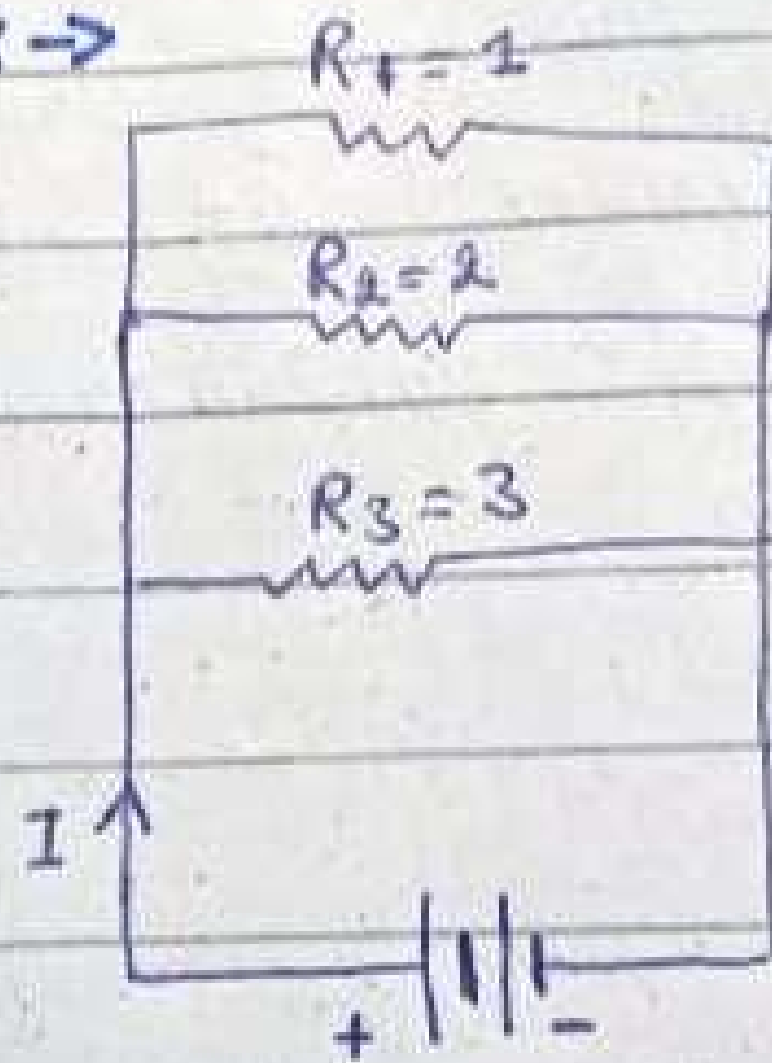 R1 = 1
R2 = 2
R3 = 3
I
+ -